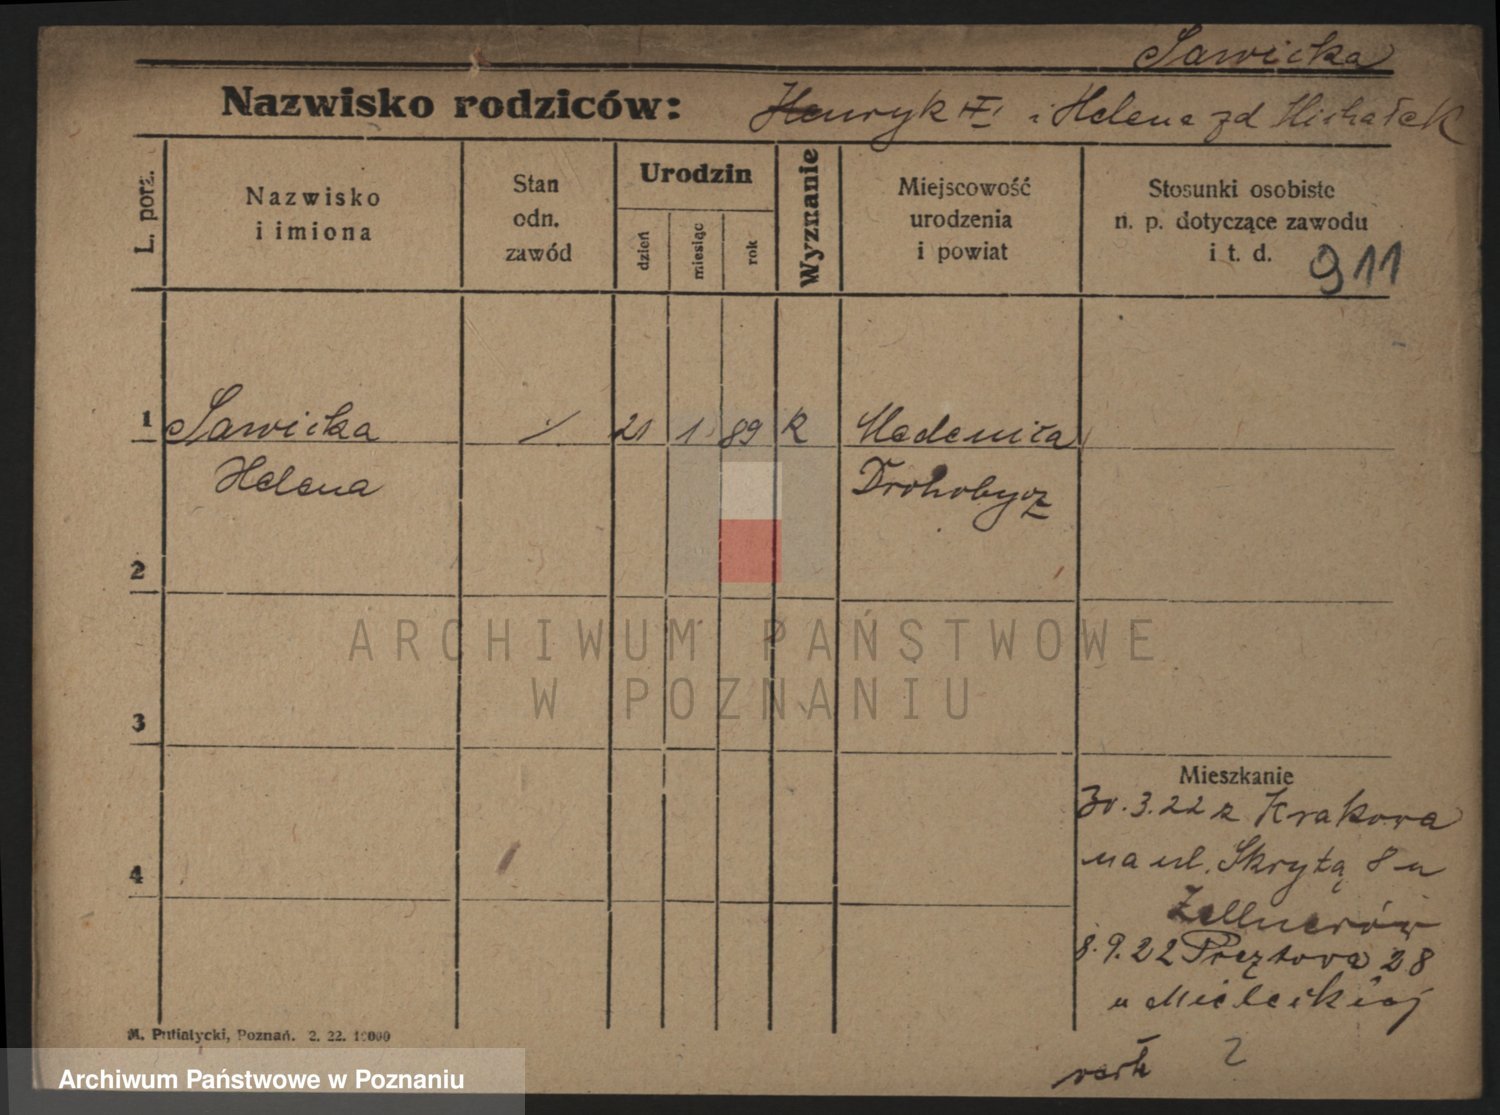 Sawicka
Nazwisko rodziców: Henryk i Helena zd Michałek
L. porz.
Nazwisko
i imiona
Stan
odn.
zawód
Urodzin
dzień
miesiąc
rok
Wyznanie
Miejscowość
urodzenia
i powiat
Stosunki osobiste
n. p. dotyczące zawodu
i t. d. 911
1 Sawicka 21 1 89 k Medenica
Helena Drohobycz
2
ARCHIWUM PAŃSTWOWE
W POZNANIU
3
Mieszkanie
30.3.22 z Krakowa
4 na ul. Skrytą 8 u
Zellnerów
8.9.22 Prężtowa 28
u Mieleckiej
M. Putiatycki, Poznań. 2. 22. 10000
2
Archiwum Państwowe w Poznaniu